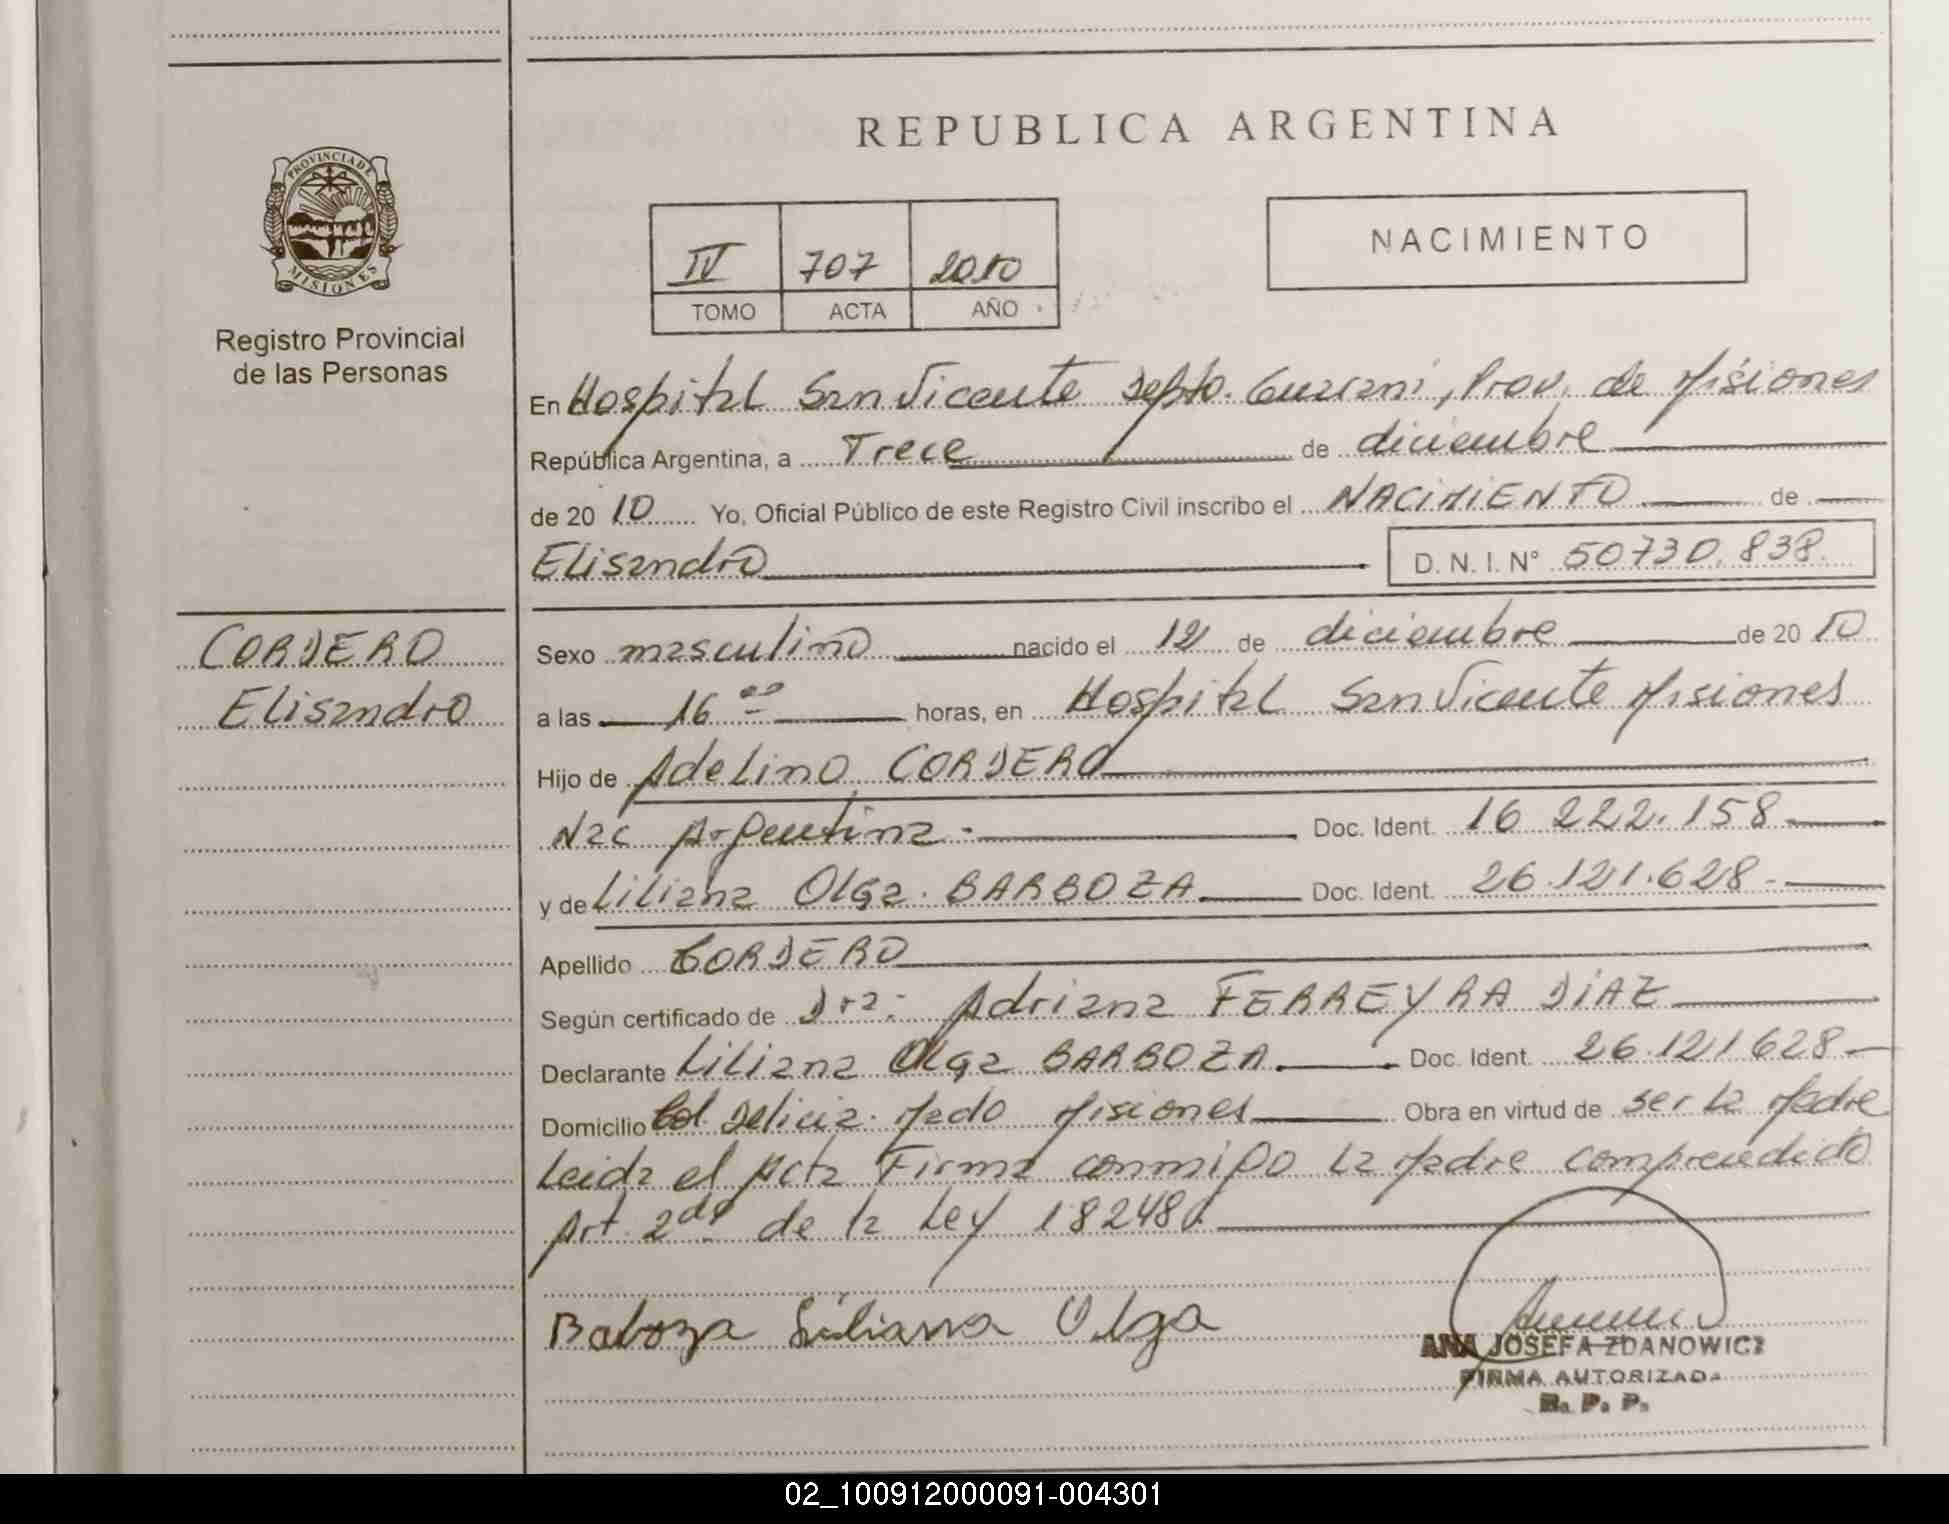 REPUBLICA ARGENTINA
PROVINCIA DE
MISIONES
Registro Provincial
de las Personas
IV 707 2010
TOMO ACTA AÑO
NACIMIENTO
En Hospital San Vicente Depto. Guarani, Prov. de Misiones
República Argentina, a Trece de diciembre
de 20 10 Yo, Oficial Público de este Registro Civil inscribo el NACIMIENTO de
Elisandro D. N. I. N° 50730.838.
CORDERO
Elisandro
Sexo masculino nacido el 12 de diciembre de 20 10
a las 16 00 horas, en Hospital San Vicente Misiones
Hijo de Adelino CORDERO
Nac Argentina - Doc. Ident. 16 222.158
y de Liliana Olga BARBOZA Doc. Ident. 26.121.628-
Apellido CORDERO
Según certificado de Dra: Adriana FERREYRA DIAZ
Declarante Liliana Olga BARBOZA Doc. Ident. 26.121628
Domicilio Col Delicia. Mado Misiones Obra en virtud de ser la Madre
Leida el Acta Firma conmigo la Madre comprendido
Art. 2do de la Ley 18248.
Baboza Liliana Olga
ANA JOSEFA ZDANOWICZ
FIRMA AUTORIZADA
R. P. P.
02_100912000091-004301